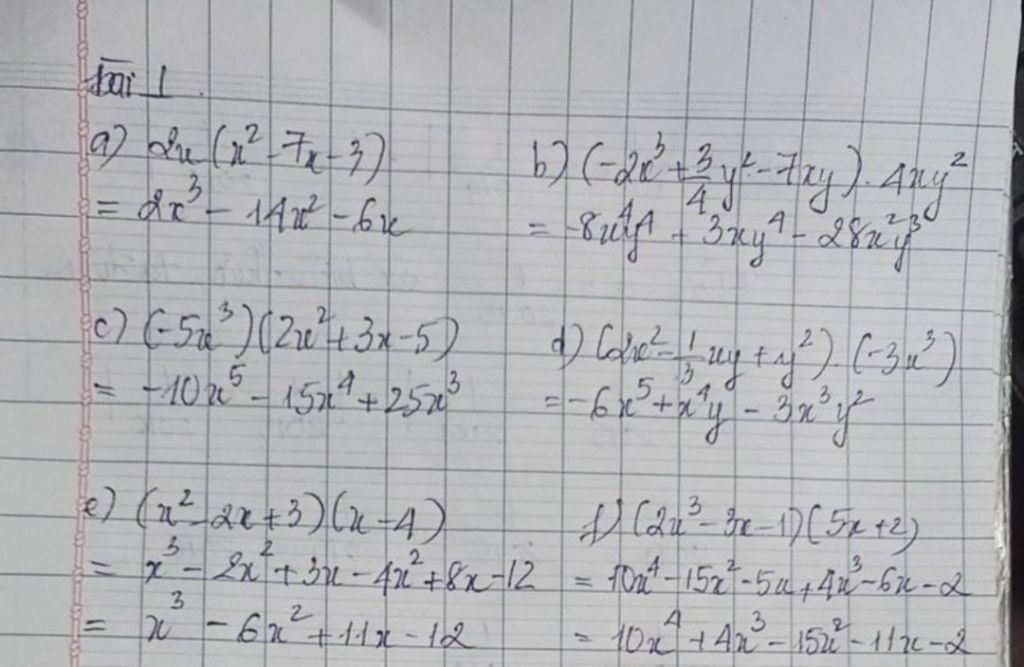 Bài 1
a) 2x(x² - 7x - 3)
= 2x³ - 14x² - 6x
b) (-2x³ + 3/4 y² - 7xy) . 4xy²
= -8x⁴y⁴ + 3xy⁴ - 28x²y³
c) (-5x³)(2x² + 3x - 5)
= -10x⁵ - 15x⁴ + 25x³
d) (2x² - 1/3 xy + y²) . (-3x³)
= -6x⁵ + x⁴y - 3x³y²
e) (x² - 2x + 3)(x - 4)
= x³ - 2x² + 3x - 4x² + 8x - 12
= x³ - 6x² + 11x - 12
f) (2x³ - 3x - 1)(5x + 2)
= 10x⁴ - 15x² - 5x + 4x³ - 6x - 2
= 10x⁴ + 4x³ - 15x² - 11x - 2